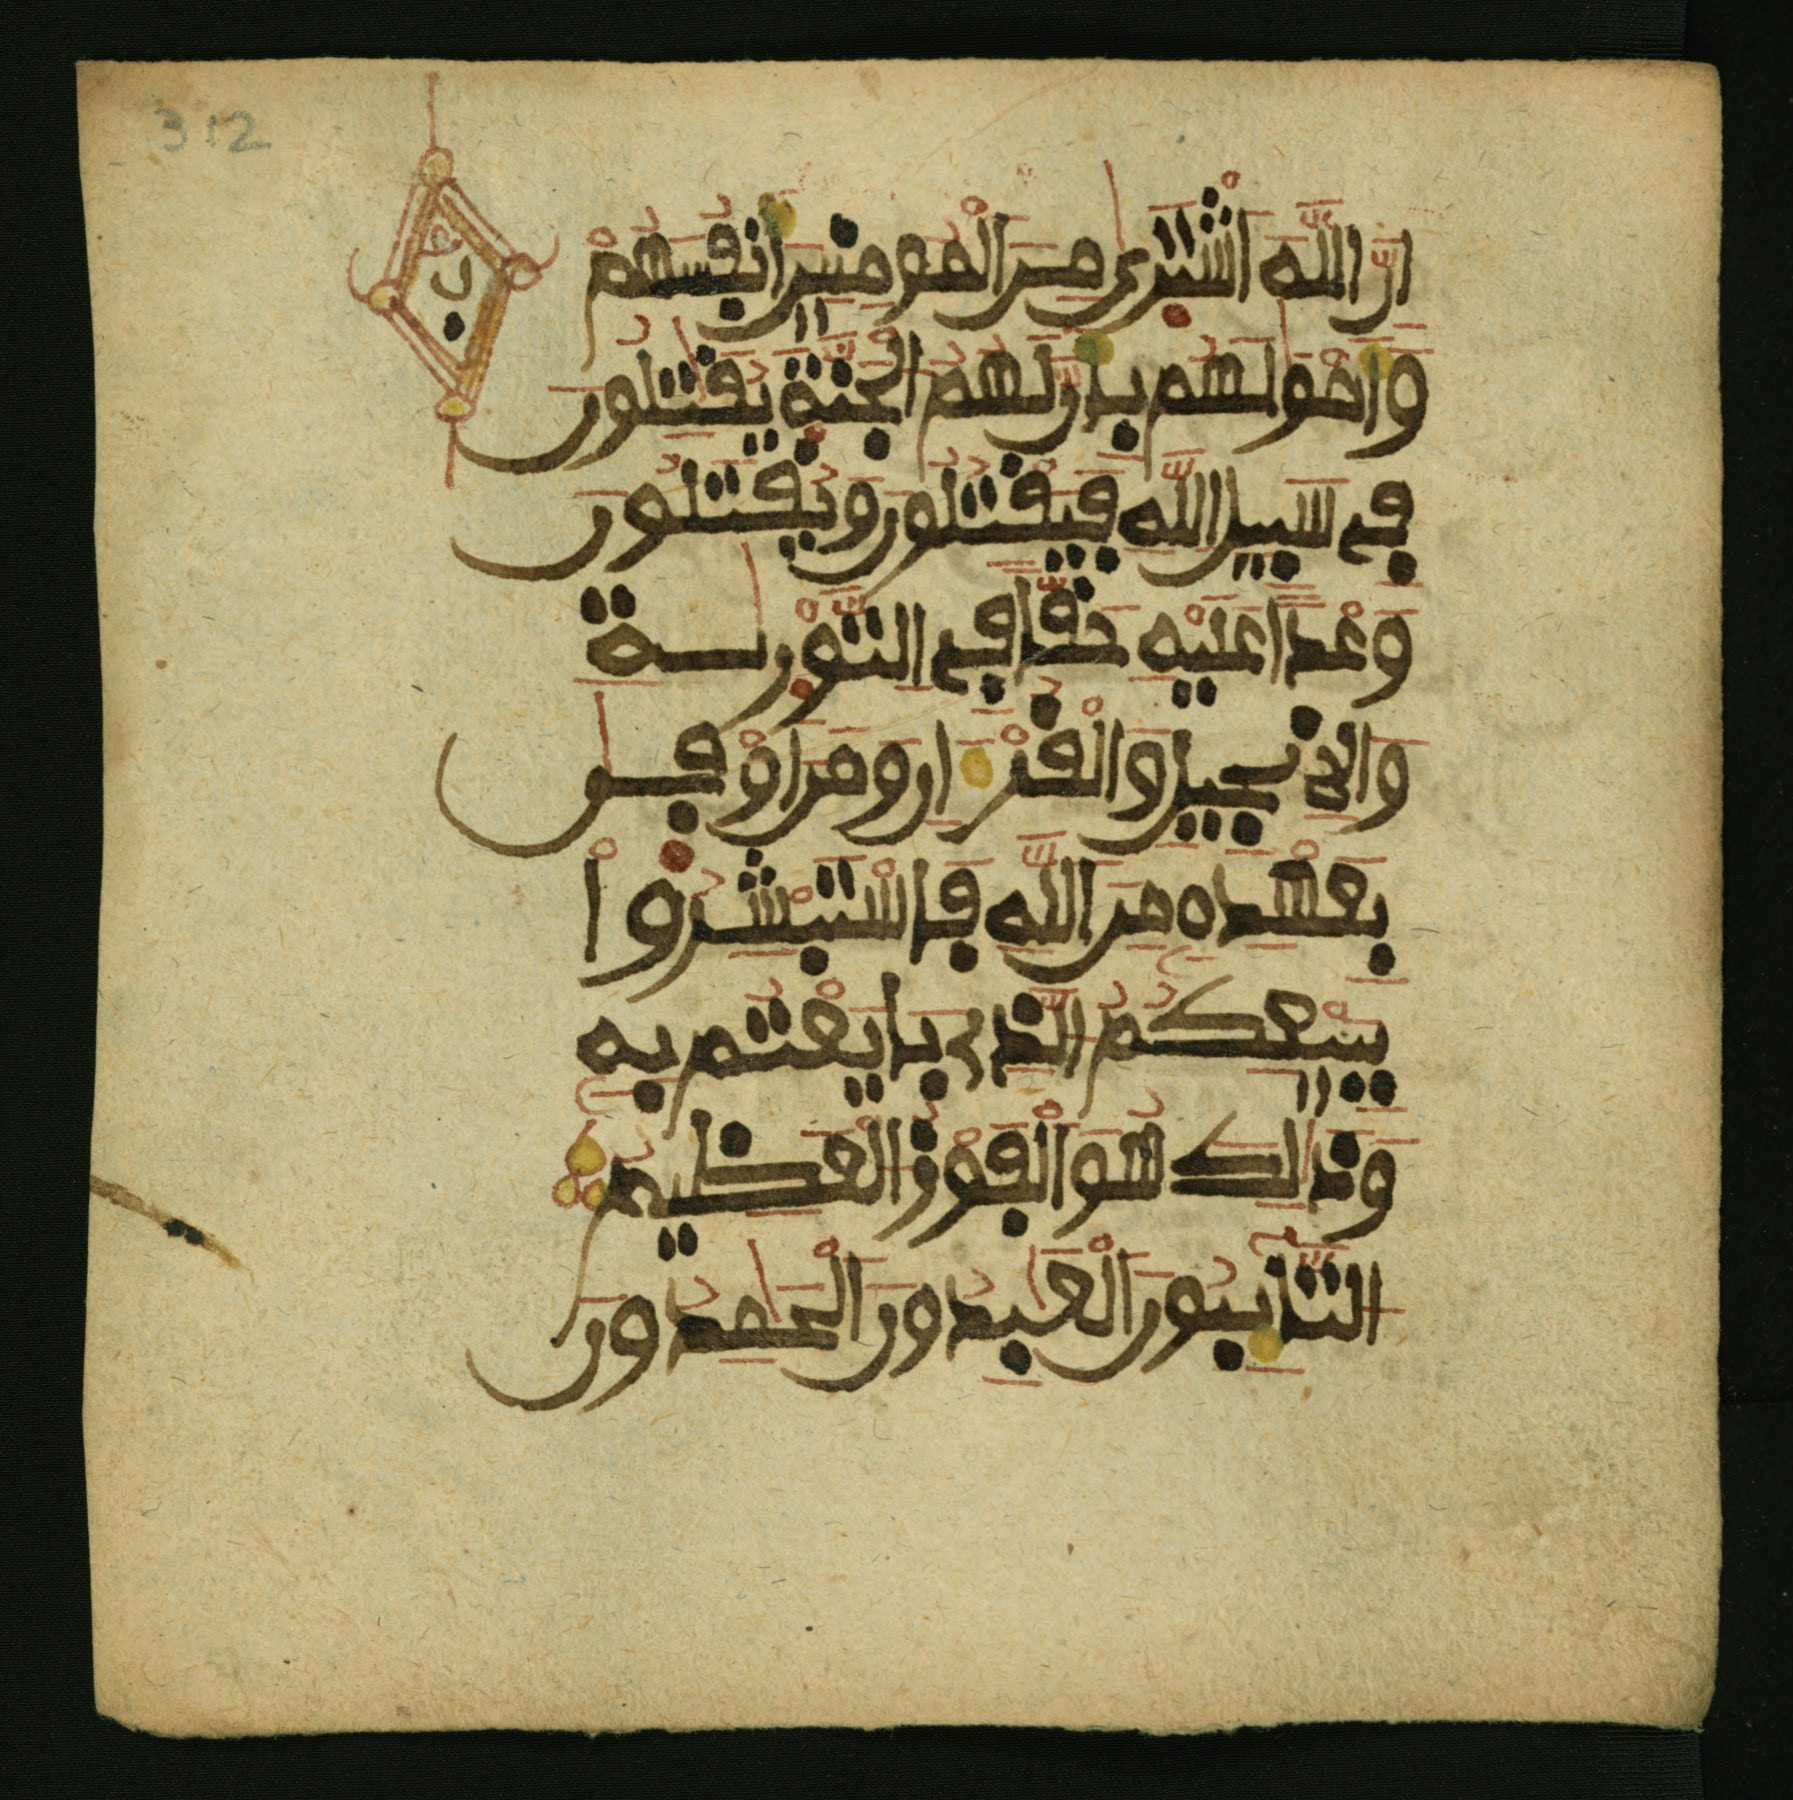 312
ب
اِنَّ اَللَّهَ اَشْتَرٜىٰ مِنَ اَلْمُومِنِينَ أَنفُسَهُمْ
وَأَمْوَٰلَهُم بِأَنَّ لَهُمُ اَلْجَنَّةَ يُقَٰتِلُونَ
فِے سَبِيلِ اِللَّهِ فَيَقْتُلُونَ وَيُقْتَلُونَ
وَعْداً عَلَيْهِ حَقّاً فِے اِلتَّوْرٜىٰةِ
وَالِانجِيلِ وَالْقُرْءَانِ وَمَنَ اَوْفٜىٰ
بِعَهْدِهِۦ مِنَ اَللَّهِ فَاسْتَبْشِرُواْ
بِبَيْعِكُمُ اُلَّذِے بَايَعْتُم بِهِۦ
وَذَٰلِكَ هُوَ اَلْفَوْزُ اُلْعَظِيمُ
اُلتَّٰٓئِبُونَ اَلْعَٰبِدُونَ اَلْحَٰمِدُونَ